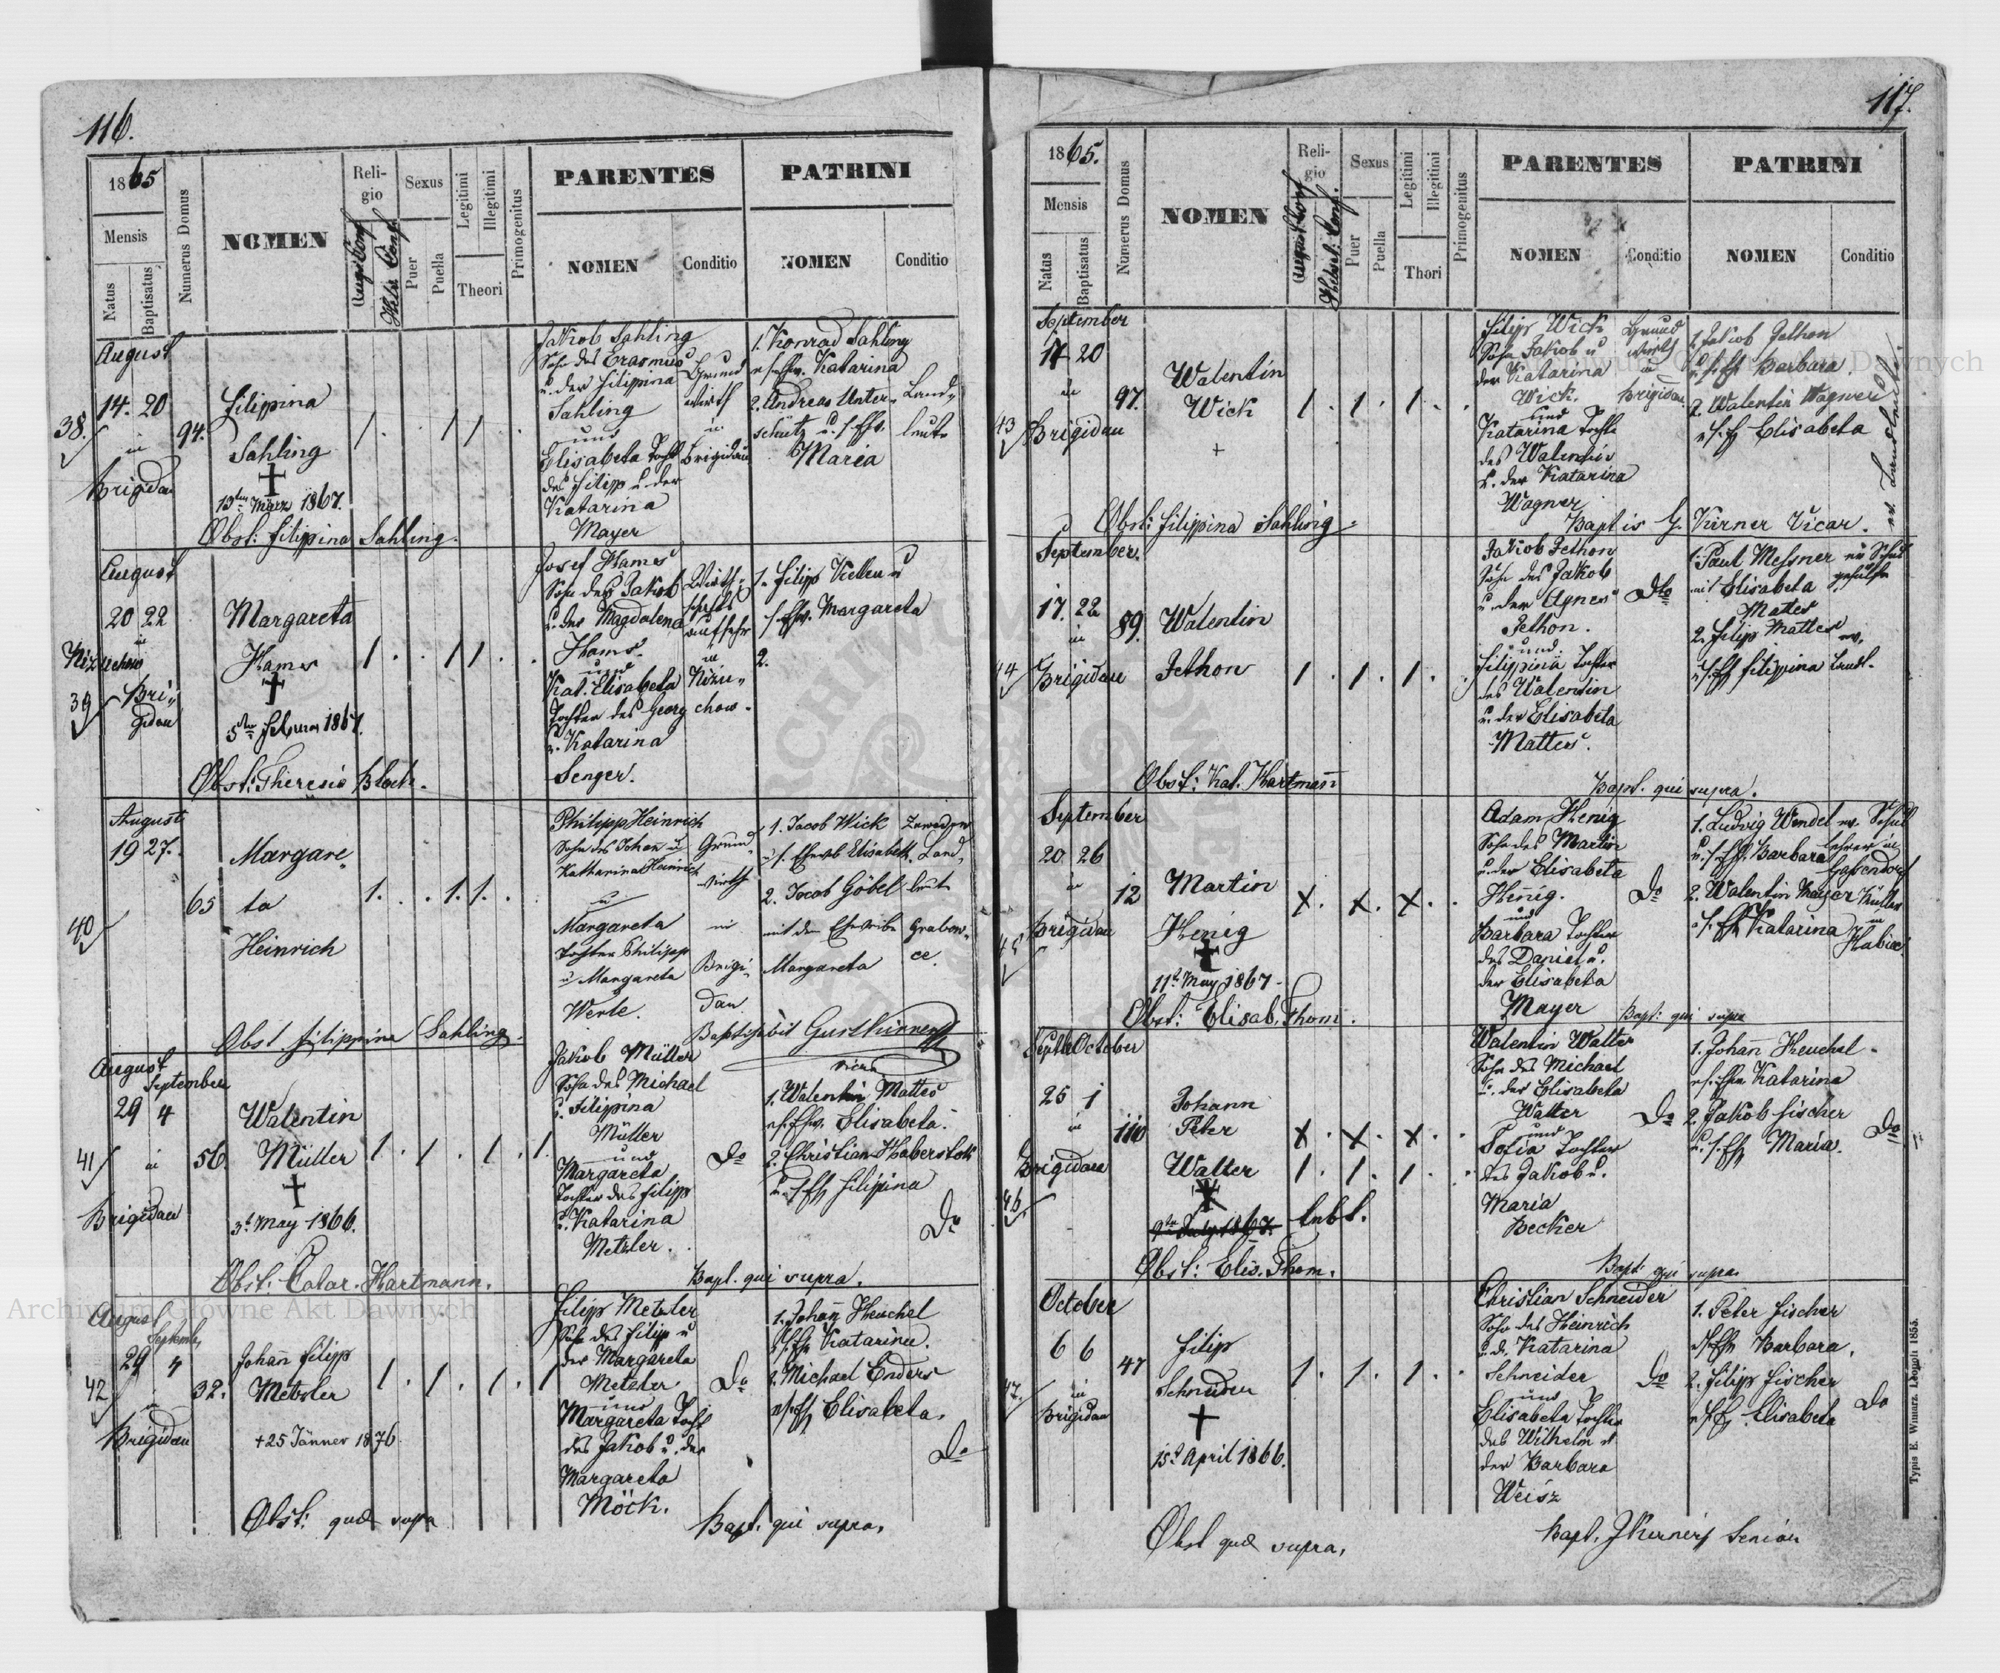 116.
1865
Mensis
Natus
Baptisatus
Numerus Domus
NOMEN
Religio
Aug: Conf
Helv. Conf.
Sexus
Puer
Puella
Legitimi
Illegitimi
Theori
Primogenitus
PARENTES
NOMEN
Conditio
PATRINI
NOMEN
Conditio
August
14. 20
38.
in
Brigidau
94.
Filippina
Sahling
13ten März 1867.
1 . . 1 1 .
Jakob Sahling
Sohn des Erasmus
u. der Filippina
Sahling
und
Elisabeta Tocht
des Filipp u der
Katarina
Mayer
Grund
wirth
in
Brigidau
1. Konrad Sahling
u. s. Ehw. Katarina
2. Andreas Unter-
schütz u. s. Ehw.
Maria
Land-
leute
Obst: Filippina Sahling.
August
20 22
in
Niznechow
39
Bri-
gidau
Margareta
Hames
5ten Februar 1867.
1 . . 1 1 . .
Josef Hames
Sohn des Jakob
u. der Magdalena
Hams.
und
Kat. Elisabeta
Tochter des Georg
u. Katarina
Senger.
Wirth-
schafts
aufsehr
in
Nizn-
chow.
1. Filipp Kellen u
s. Ehw. Margareta
2.
Obst: Theresia Bloch.
August
19 27.
40
65
Margare
ta
Heinrich
1. . . 1. 1. .
Philipp Heinrich
Sohn des Johan u
Katharina Heinrich
u
Margareta
Tochter Philipp
u Margareta
Werle.
Grund-
wirth
in
Brigi-
dau
1. Jacob Wick
u s. Eheweib Elisabeth
2. Jacob Göbel
mit dem Eheweibe
Margareta
Land-
leute
Grabow-
ce.
Obst Filippina Sahling.
Baptisabit Gust Kirner
Vicar
August
September
29 4
41
in
Brigidau
56.
Valentin
Müller
3t May 1866.
1 . 1 . 1 . 1.
Jakob Müller
Sohn des Michael
u. Filipina
Müller
und
Margareta
Tochter des Filipp
u. Katarina
Metzler.
Do
1. Valentin Mattes
u s. Ehw. Elisabeta.
2. Christian Haberstock
u. s. Eh Filipina
Do
Obst: Catar. Hartmann.
Bapt. qui supra.
August
September
29 4
42
in
Brigidau
32.
Johan̄ Filipp
Metzler
+ 25 Jänner 1876.
1 . 1 . 1 . 1
Filipp Metzler
Sohn des Filipp u
der Margareta
Metzler
und
Margareta Tocht
des Jakob u. der
Margareta
Möck.
Do
1. Johan̄ Heuchel
u s Ehw Katarina.
2. Michael Enders
u s. Eh Elisabeta.
Do
Obst: quæ supra
Bapt. qui supra.
117.
1865.
Mensis
Natus
Baptisatus
Numerus Domus
NOMEN
Religio
August. Conf
Helvet: Conf.
Sexus
Puer
Puella
Legitimi
Illegitimi
Thori
Primogenitus
PARENTES
NOMEN
Conditio
PATRINI
NOMEN
Conditio
September
14 20
in
43
Brigidau
97.
Walentin
Wick
+
1 . 1 . 1 . .
Filipp Wick
Sohn Jakob u
der Katarina
Wick.
und
Katarina Tocht
des Walentin
u. der Katarina
Wagner
Grund
wirth
in
Brigidau
1. Jakob Jethon
u s. Eh Barbara.
2. Walentin Wagner
u. s. Eh Elisabeta
ev. Landleute.
Obst: Filippina Sahling.
Baptis G. Kirner Vicar.
September.
17. 22
in
44
Brigidau
89.
Walentin
Jethon
1 . 1 . 1 . .
Jakob Jethon
Sohn des Jakob
u. der Agnes
Jethon.
und.
Filippina Tochter
des Walentin
u. der Elisabeta
Mattes.
Do
1. Paul Messner
mit Elisabeta
Mattes
2. Filip Mattes
u. s. Eh Filippina
ev Schul
gehülfe
ev.
Landl.
Obst: Kat. Hartman̄
Bapt. qui supra.
September
20 26
in
Brigidau
45
12
Martin
Henig
11t May 1867.
x . x . x . .
Adam Henig
Sohn des Martin
u. der Elisabeta
Hen̄ig.
und
Barbara Tochter
des Daniel u.
der Elisabeta
Mayer
Do
1. Ludvig Wendel
u. s. Eh. Barbara
2. Walentin Mayer
u s. Eh Katarina
ev. Schul
lehrer in
Gassendorf
Müller
in
Obst: Elisab. Thom.
Bapt: qui supra
Septbr October
25 1
in
Brigidau
46
110
Johann
Peter
Walter
9ten July 1867.
lebt.
x . x . x . .
1 . 1 . 1 . .
Walentin Walter
Sohn des Michael
u. der Elisabeta
Walter
und
Sofia Tochter
des Jakob u.
Maria
Becker
Do
1. Johan̄ Heuchel.
u s. Ehw Katarina
2. Jakob Fischer
u. s. Eh Maria.
Do
Obst: Elis. Thom.
Bapt: qui supra.
October
6 6
in
47.
Brigidau
47
Filipp
Schneider
15t April 1866.
1 . 1 . 1 . .
Christian Schneider
Sohn des Heinrich
u. d. Katarina
Schneider
und
Elisabeta Tochter
des Wilhelm u
der Barbara
Weisz
Do
1. Peter Fischer
u s Eh Barbara.
2. Filipp Fischer
u s Eh Elisabeta
Do
Obst quæ supra.
Bapt. J Kirner Senior
Typis E. Winiarz. Leopoli 1855.
Archiwum Główne Akt Dawnych